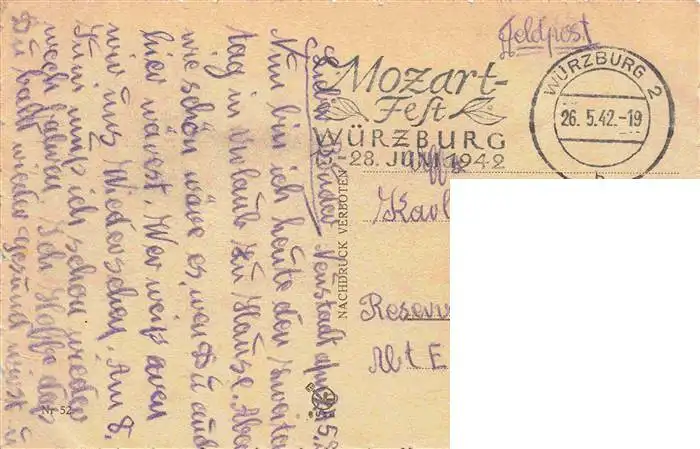 Feldpost
Mozart-
Fest
WÜRZBURG
28. JUNI 1942
WÜRZBURG 2
26.5.42.-19
b
NACHDRUCK VERBOTEN
Karl
Reserv
Abt E
Nr 52
Lieber Bruder Neustadt
Nun bin ich heute den zweiten
tag in Urlaub zu Hause. Aber
wie schön wäre es, wen Du auch
hier wärest. Wer weiß wen
wir uns Wiedersehen. Am 8.
Juni muß ich schon wieder
nach Ich Hoffe das
Du bald wieder gesund wirst u